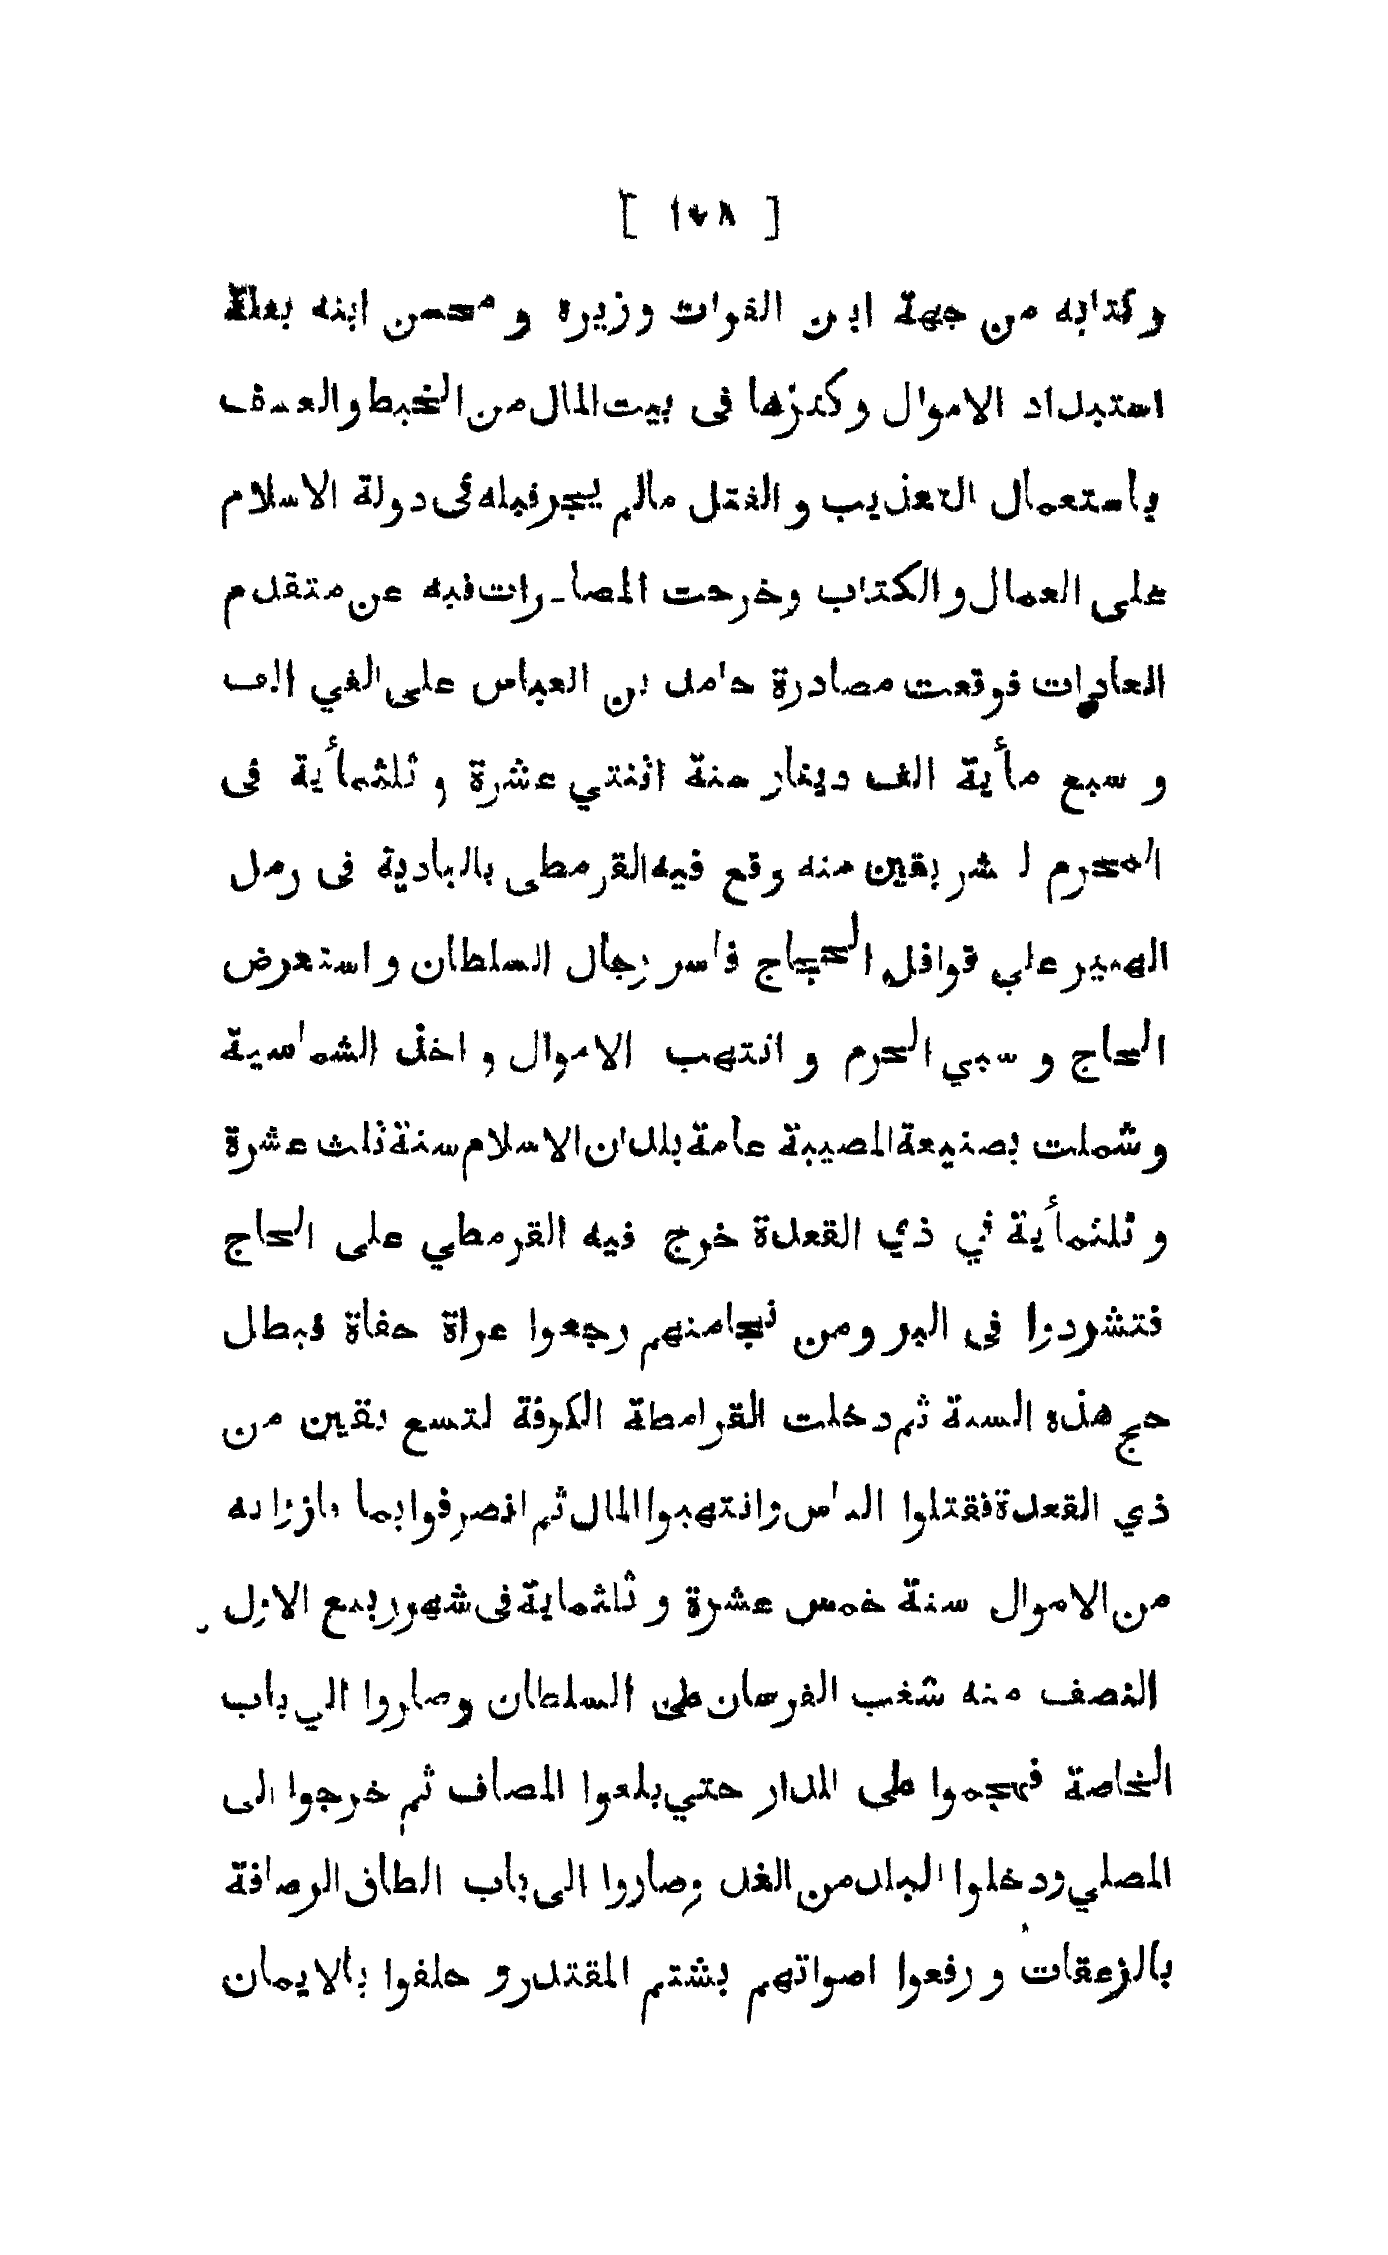 [ ١٧٨ ]
وكتابه من جهة ابن الفرات وزيره و محسن ابنه بعلة
استبداد الاموال وكنزها فى بيت المال من الخبط والعسف
باستعمال التعذيب و القتل مالم يجر قبله فى دولة الاسلام
على العمال والكتاب وخرجت المصادرات فيه عن متقدم
العادات فوقعت مصادرة حامد بن العباس على الفي الف
و سبع مأية الف دينار سنة اثنتي عشرة و ثلثمأية فى
المحرم لعشر بقين منه وقع فيه القرمطى بالبادية فى رمل
الهبير علي قوافل الحجاج فاسر رجال السلطان و استعرض
الحاج و سبي الحرم و انتهب الاموال و اخذ الشماسية
و شملت بصنيعة المصيبة عامة بلدان الاسلام سنة ثلث عشرة
و ثلثمأية في ذي القعدة خرج فيه القرمطي على الحاج
فتشردوا فى البر ومن نجامنهم رجعوا عراة حفاة فبطل
حج هذه السنة ثم دخلت القرامطة الكوفة لتسع بقين من
ذي القعدة فقتلوا الناس وانتهبوا المال ثم انصرفوا بما فازوا به
من الاموال سنة خمس عشرة و ثلثماية فى شهور ربيع الاول
النصف منه شغب الفرسان على السلطان وصاروا الي باب
الخاصة فهجموا على الدار حتي بلغوا المصاف ثم خرجوا الى
المصلي ودخلوا البلد من الغد وصاروا الى باب الطاق الرصافة
بالزعقات و رفعوا اصواتهم بشتم المقتدر و حلفوا بالايمان